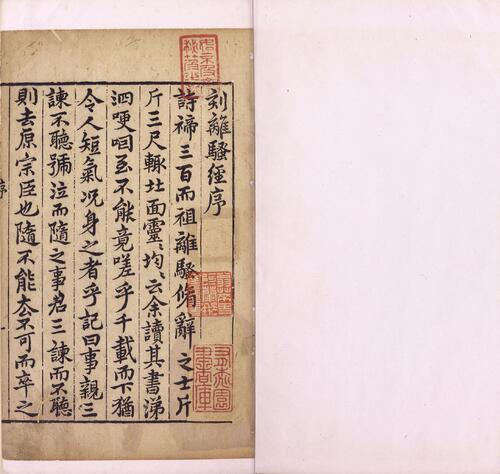 刻離騷經序
詩禘三百而祖離騷脩辭之士斤
斤三尺輙壯面靈均云余讀其書涕
泗哽咽至不能竟嗟乎千載而下猶
令人短氣况身之者乎記曰事親三
諫不聽號泣而隨之事君三諫而不聽
則去原宗臣也隨不能去不可而卒之
序